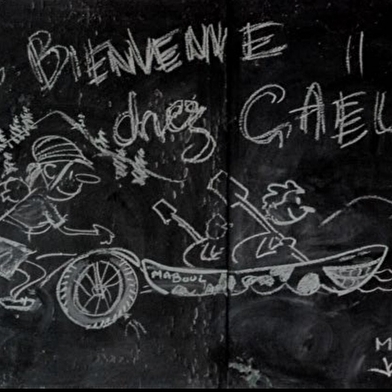 BIENVENVE
chez GAEL
MABOUL
M